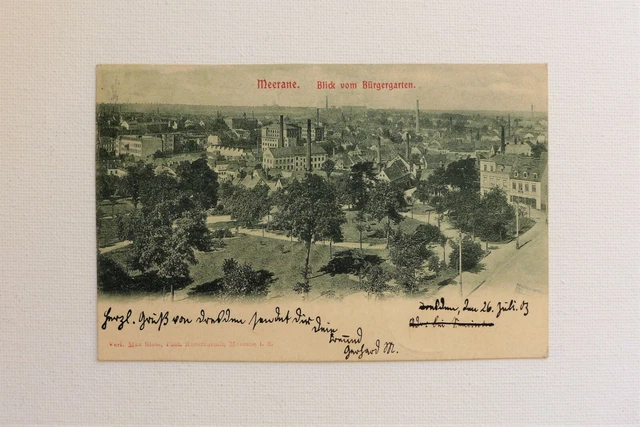 Meerane. Blick vom Bürgergarten.
Herzl. Gruß von Dresden sendet Dir
Dein
Freund
Gerhard M.
Dresden, den 26. Juli. 03
bei
Verl.